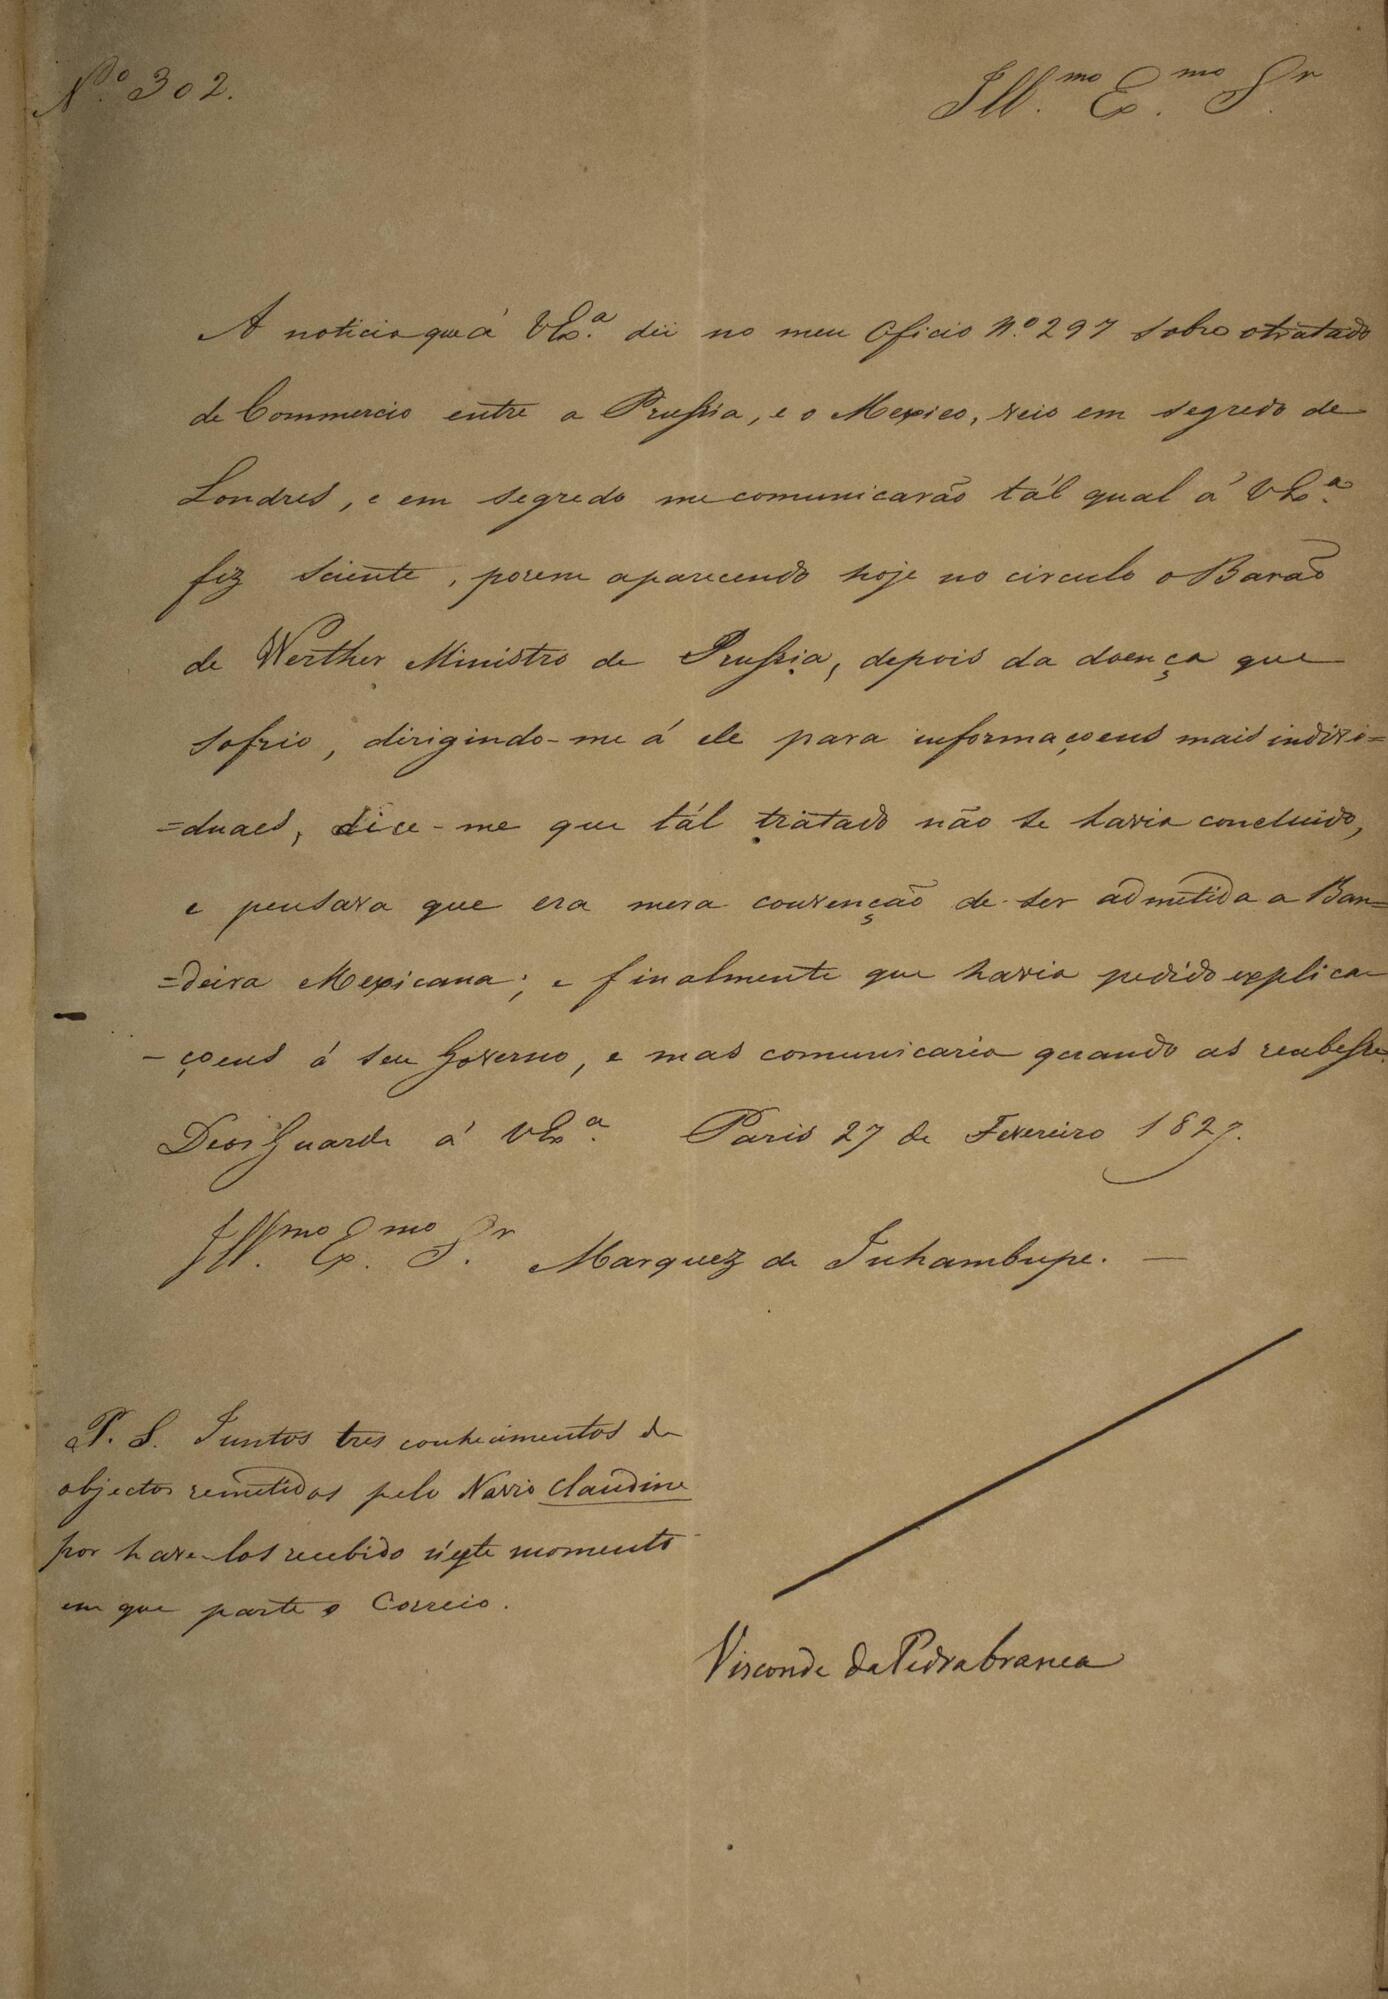 N.º 302.
Ill.mo Ex.mo Sr.
A noticia que á VEx.ª dei no meu Oficio N.º 297 sobre o tratado
de Commercio entre a Prussia, e o Mexico, veio em segredo de
Londres, e em segredo me comunicarão tál qual á VEx.ª
fiz sciente, porem aparecendo hoje no circulo o Barão
de Werther Ministro de Prussia, depois da doença que
sofrio, dirigindo-me á ele para informaçoens mais indivi=
=duaes, dice-me que tál tratado não se havia concluido,
e pensava que era mera convenção de ser admetida a Ban=
=deira Mexicana; e finalmente que havia pedido explica-
-çoens á seu Governo, e mas comunicaria quando as recebesse.
Deos Guarde á VEx.ª Paris 27 de Fevereiro 1827.
Ill.mo Ex.mo Sr. Marquez de Inhambupe. —
P. S. Juntos tres conhecimentos de
objectos remetidos pelo Navio Claudine
por have-los recebido n'este momento
em que parte o Correio.
Visconde da Pedrabranca